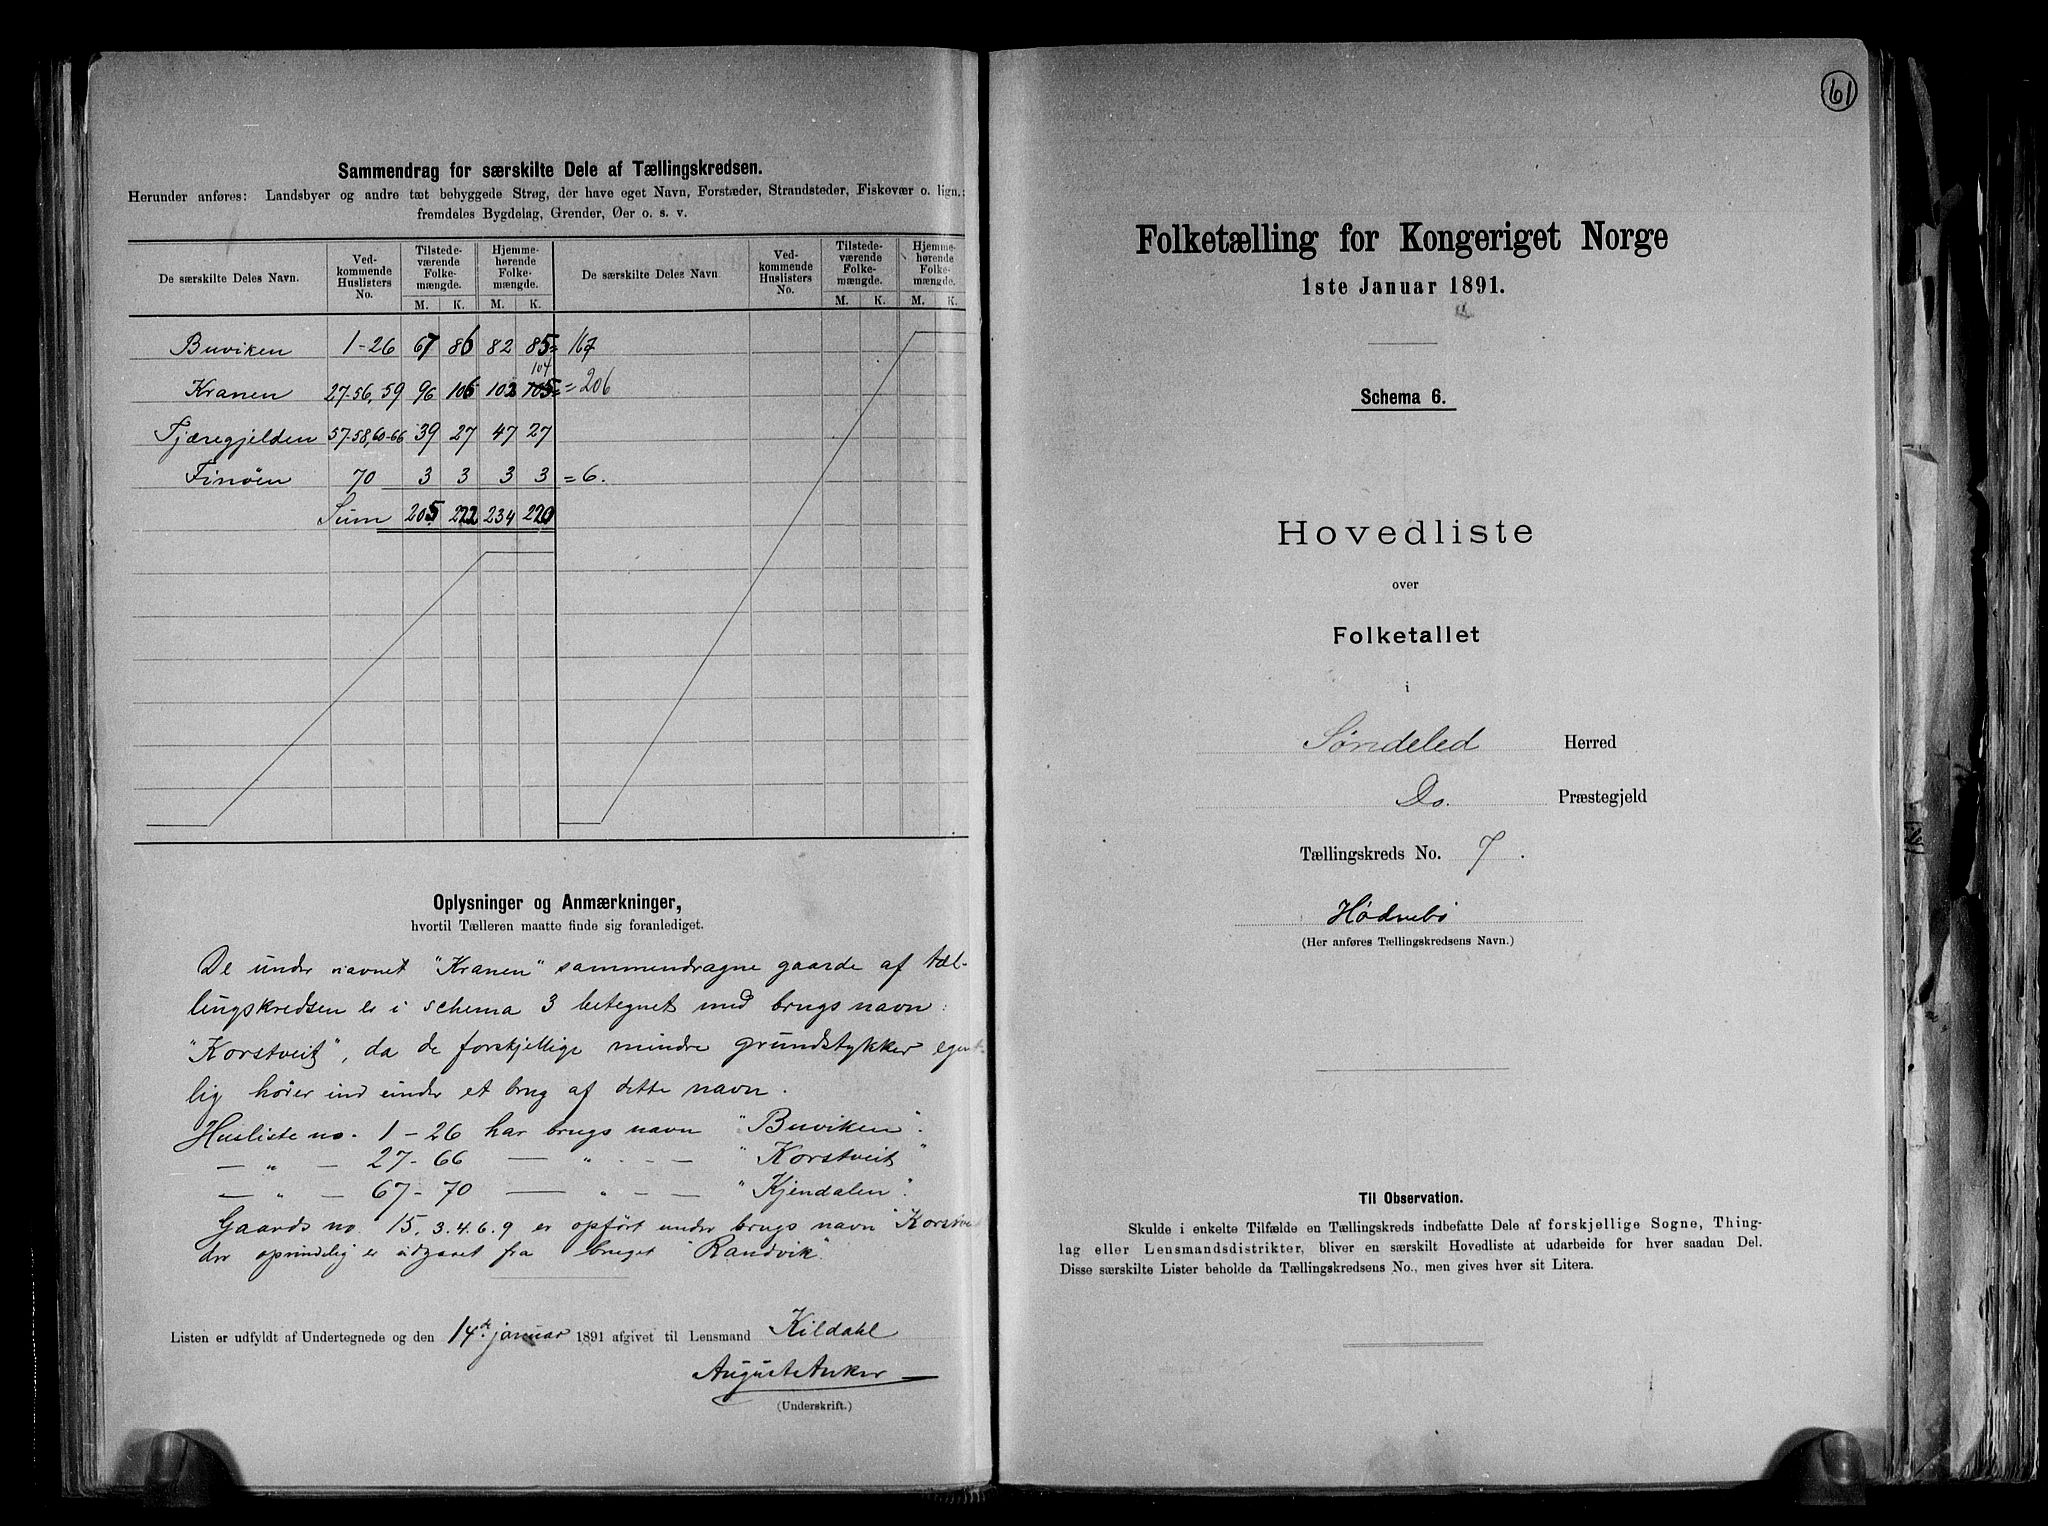 Sammendrag for særskilte Dele af Tællingskredsen.
Herunder anføres: Landsbyer og andre tæt bebyggede Strøg, der have eget Navn, Forstæder, Strandsteder, Fiskevær o. lign.;
fremdeles Bygdelag, Grender, Øer o. s. v.
De særskilte Deles Navn. Ved-kommende Huslisters No. Tilstede-værende Folke-mængde. Hjemme-hørende Folke-mængde. De særskilte Deles Navn Ved-kommende Huslisters No. Tilstede-værende Folke-mængde. Hjemme-hørende Folke-mængde.
M. K. M. K. M. K. M. K.
Buviken 1-26 67 86 82 85 = 167
104
Kranen 27-56, 59 96 106 102 105 = 206
Tjæregjelden 57-58, 60-66 39 27 47 27
Finöen 70 3 3 3 3 = 6.
Sum 205 222 234 220
Oplysninger og Anmærkninger,
hvortil Tælleren maatte finde sig foranlediget.
De under navnet "Kranen" sammendragne gaarde af tæl-
lingskredsen er i schema 3 betegnet med brugsnavn:
"Korstveit", da de forskjellige mindre grundstykker egent-
lig hører ind under et brug af dette navn.
Husliste no. 1-26 har brugsnavn "Buviken".
— " — 27-66 — " — — "Korstveit"
— " — 67-70 — " — — "Kjendalen".
Gaards no. 15, 3. 4. 6. 9 er opført under brugsnavn "Korstveit
der oprindelig er udgaaet fra bruget "Randvik".
Listen er udfyldt af Undertegnede og den 14de januar 1891 afgivet til Lensmand Kildahl
August Anker
(Underskrift.)
61
Folketælling for Kongeriget Norge
1ste Januar 1891.
Schema 6.
Hovedliste
over
Folketallet
i
Søndeled Herred
Do. Præstegjeld
Tællingskreds No. 7.
Hødnebø
(Her anføres Tællingskredsens Navn.)
Til Observation.
Skulde i enkelte Tilfælde en Tællingskreds indbefatte Dele af forskjellige Sogne, Thing-
lag eller Lensmandsdistrikter, bliver en særskilt Hovedliste at udarbeide for hver saadan Del.
Disse særskilte Lister beholde da Tællingskredsens No., men gives hver sit Litera.